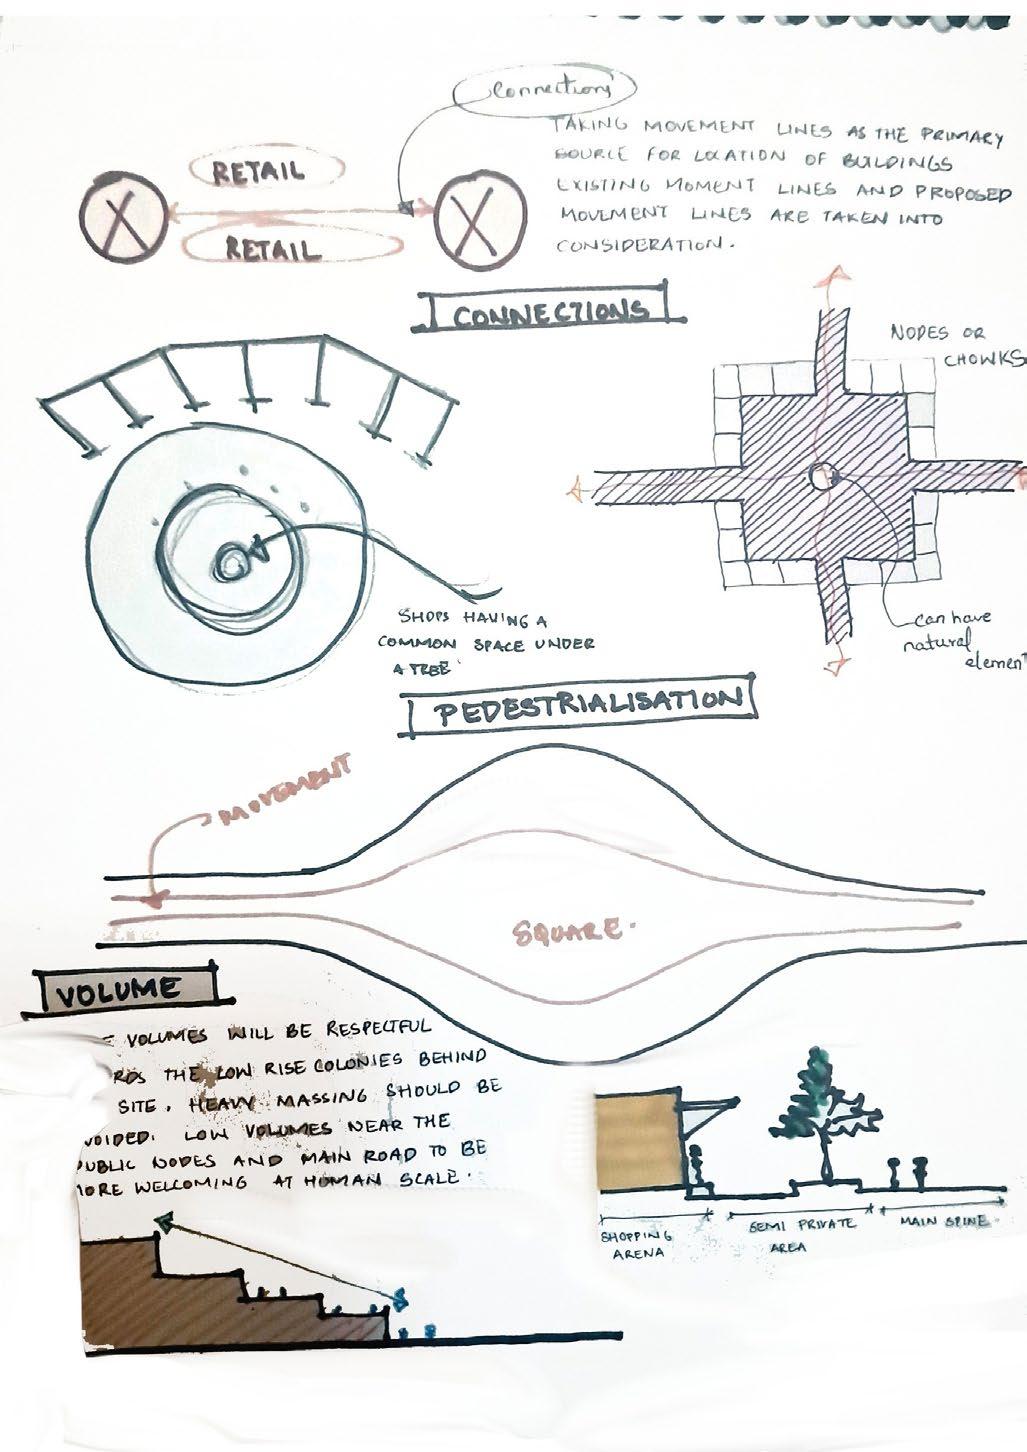 Connections
TAKING MOVEMENT LINES AS THE PRIMARY
SOURCE FOR LOCATION OF BUILDINGS
EXISTING MOMENT LINES AND PROPOSED
MOVEMENT LINES ARE TAKEN INTO
CONSIDERATION.
RETAIL
RETAIL
CONNECTIONS
NODES OR
CHOWKS
SHOPS HAVING A
COMMON SPACE UNDER
A TREE
can have
natural
element
PEDESTRIALISATION
MOVEMENT
SQUARE.
VOLUME
VOLUMES WILL BE RESPECTFUL
RDS THE LOW RISE COLONIES BEHIND
SITE. HEAVY MASSING SHOULD BE
VOIDED. LOW VOLUMES NEAR THE
UBLIC NODES AND MAIN ROAD TO BE
ORE WELCOMING AT HUMAN SCALE.
SHOPPING
ARENA
SEMI PRIVATE
AREA
MAIN SPINE.